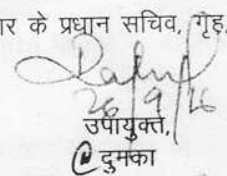 र के प्रधान सचिव, गृह,
26/9/16
उपायुक्त,
दुमका